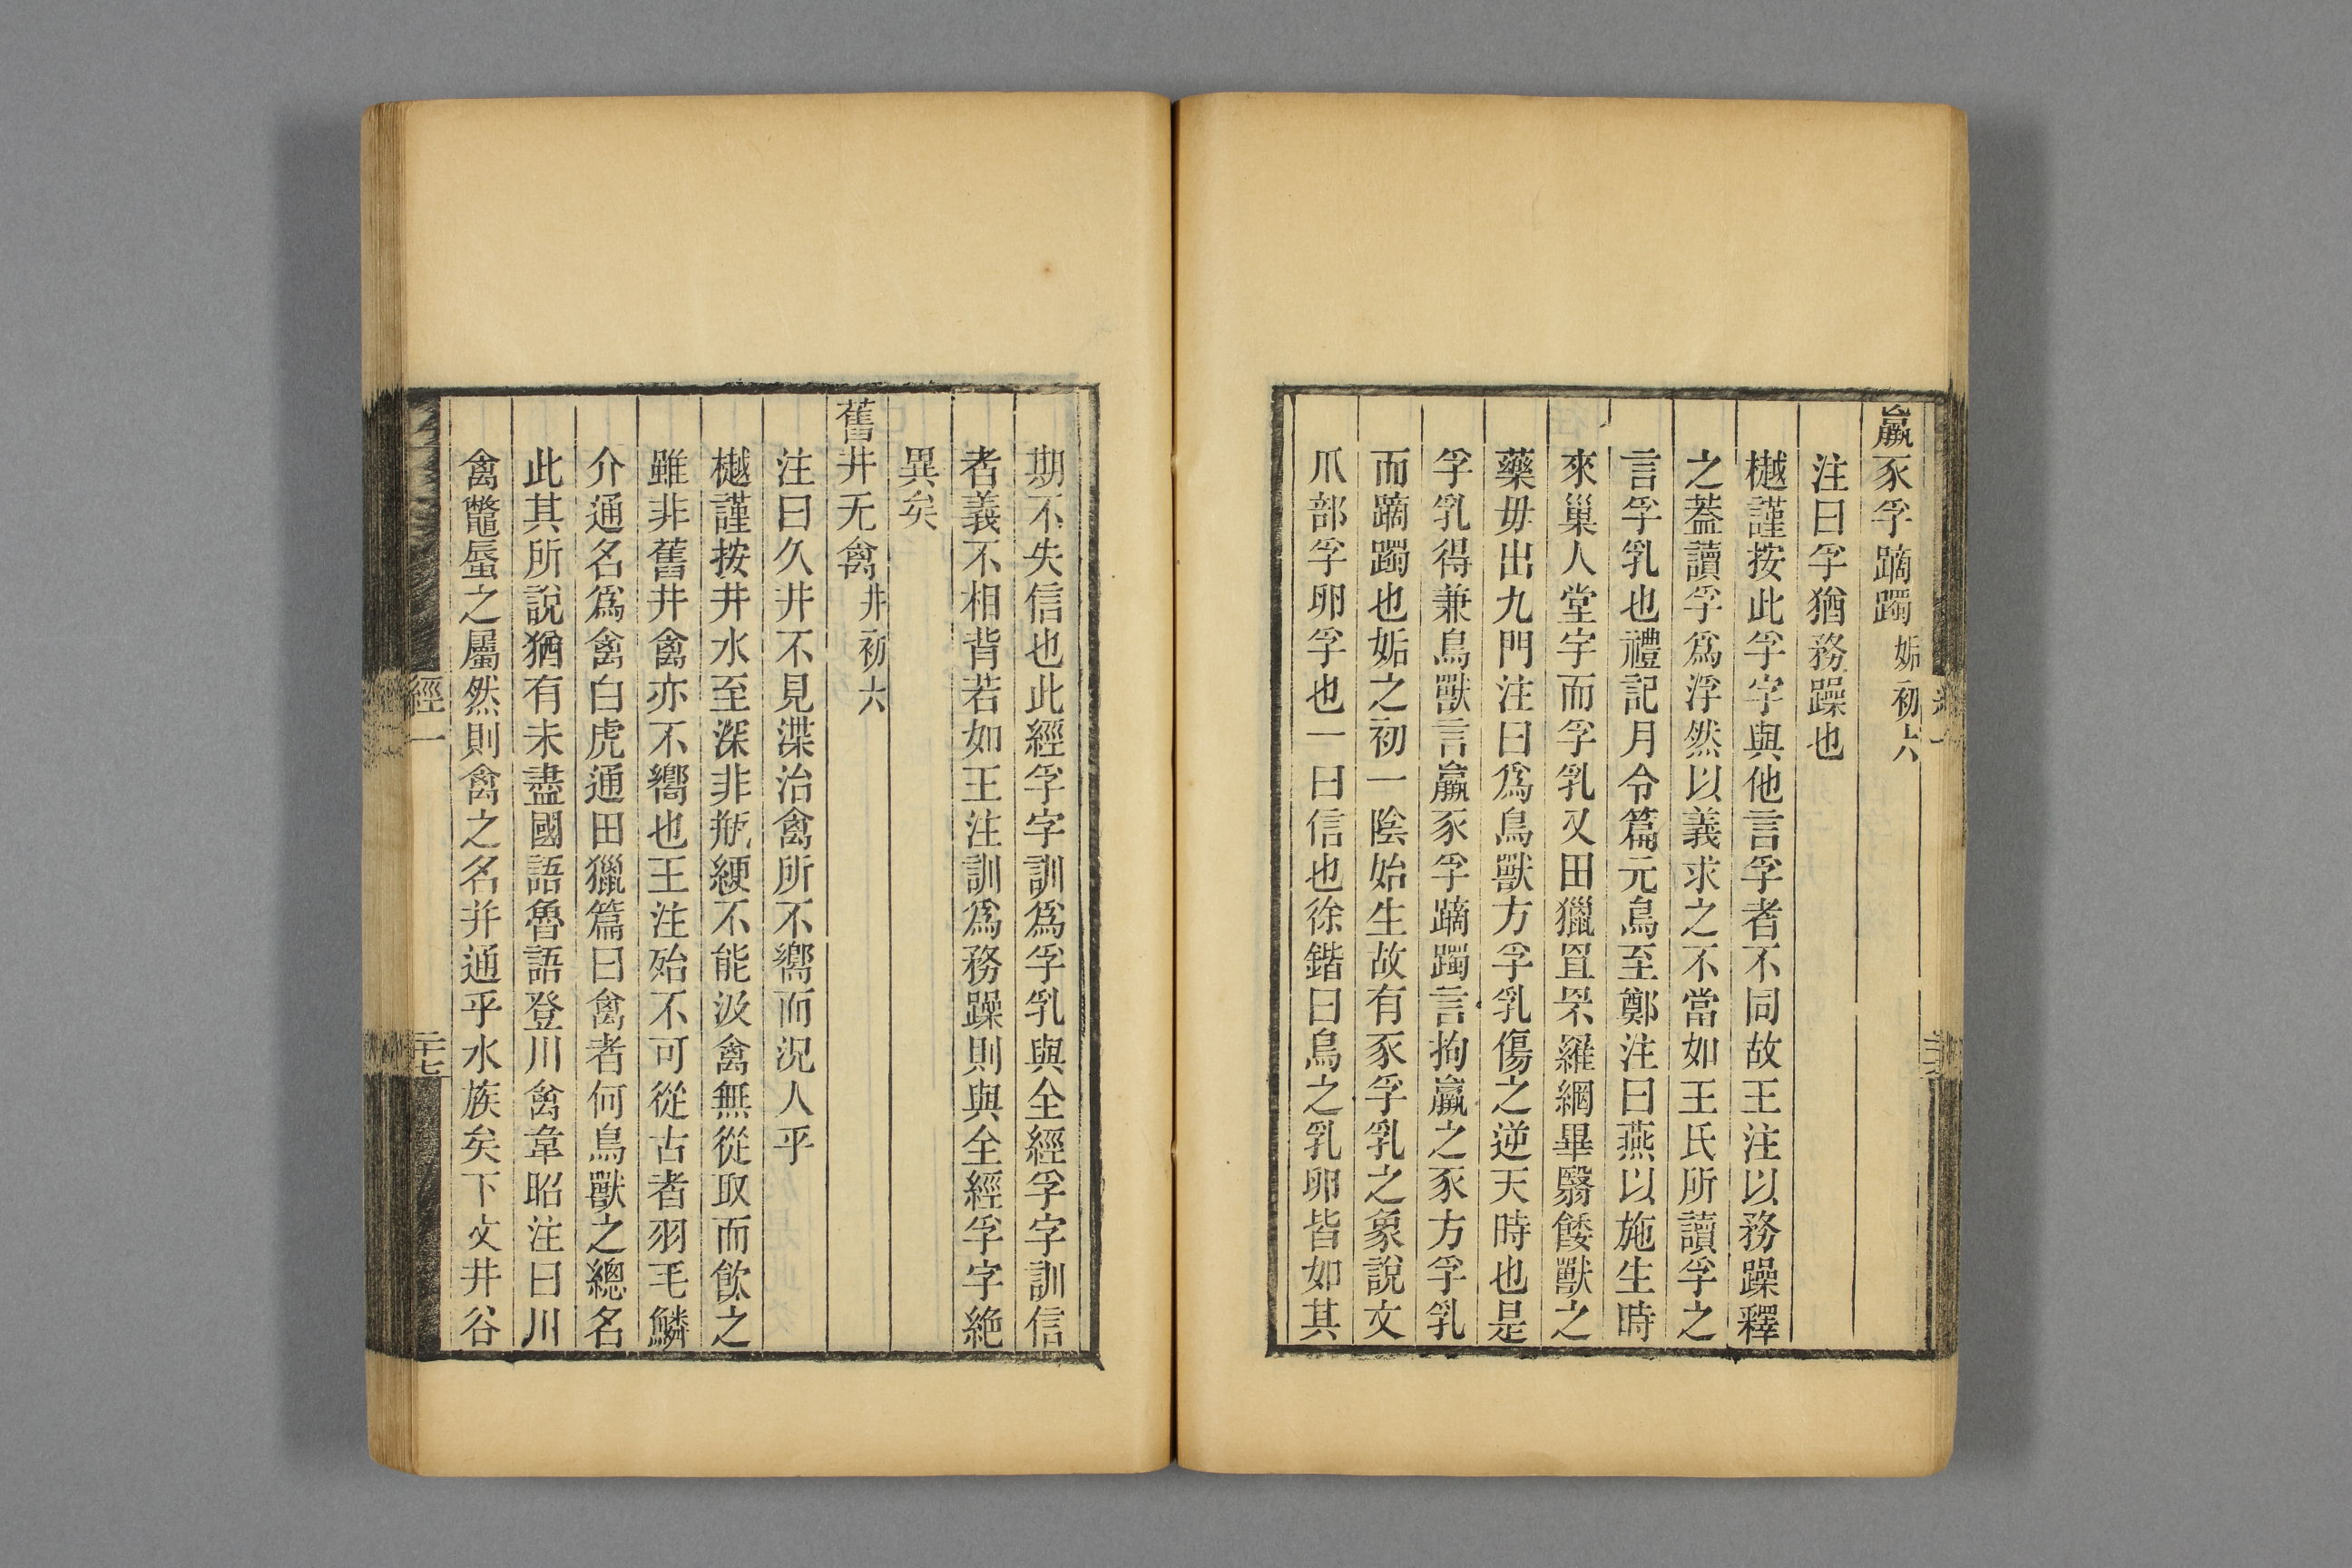 羸豕孚蹢躅姤初六
注曰孚猶務躁也
樾謹按此孚字與他言孚者不同故王注以務躁釋
之葢讀孚爲浮然以義求之不當如王氏所讀孚之
言孚乳也禮記月令篇元鳥至鄭注曰燕以施生時
來巢人堂宇而孚乳又田獵罝罘羅網畢翳餧獸之
藥毋出九門注曰爲鳥獸方孚乳傷之逆天時也是
孚乳得兼鳥獸言羸豕孚蹢躅言拘羸之豕方孚乳
而蹢躅也姤之初一陰始生故有豕孚乳之象說文
爪部孚卵孚也一曰信也徐鍇曰鳥之乳卵皆如其
期不失信也此經孚字訓爲孚乳與全經孚字訓信
者義不相背若如王注訓爲務躁則與全經孚字絶
異矣
舊井无禽井初六
注曰久井不見渫治禽所不嚮而況人乎
樾謹按井水至深非瓶綆不能汲禽無從取而飮之
雖非舊井禽亦不嚮也王注殆不可從古者羽毛鱗
介通名爲禽白虎通田獵篇曰禽者何鳥獸之總名
此其所說猶有未盡國語魯語登川禽韋昭注曰川
禽鼈蜃之屬然則禽之名并通乎水族矣下文井谷
經一
二十七